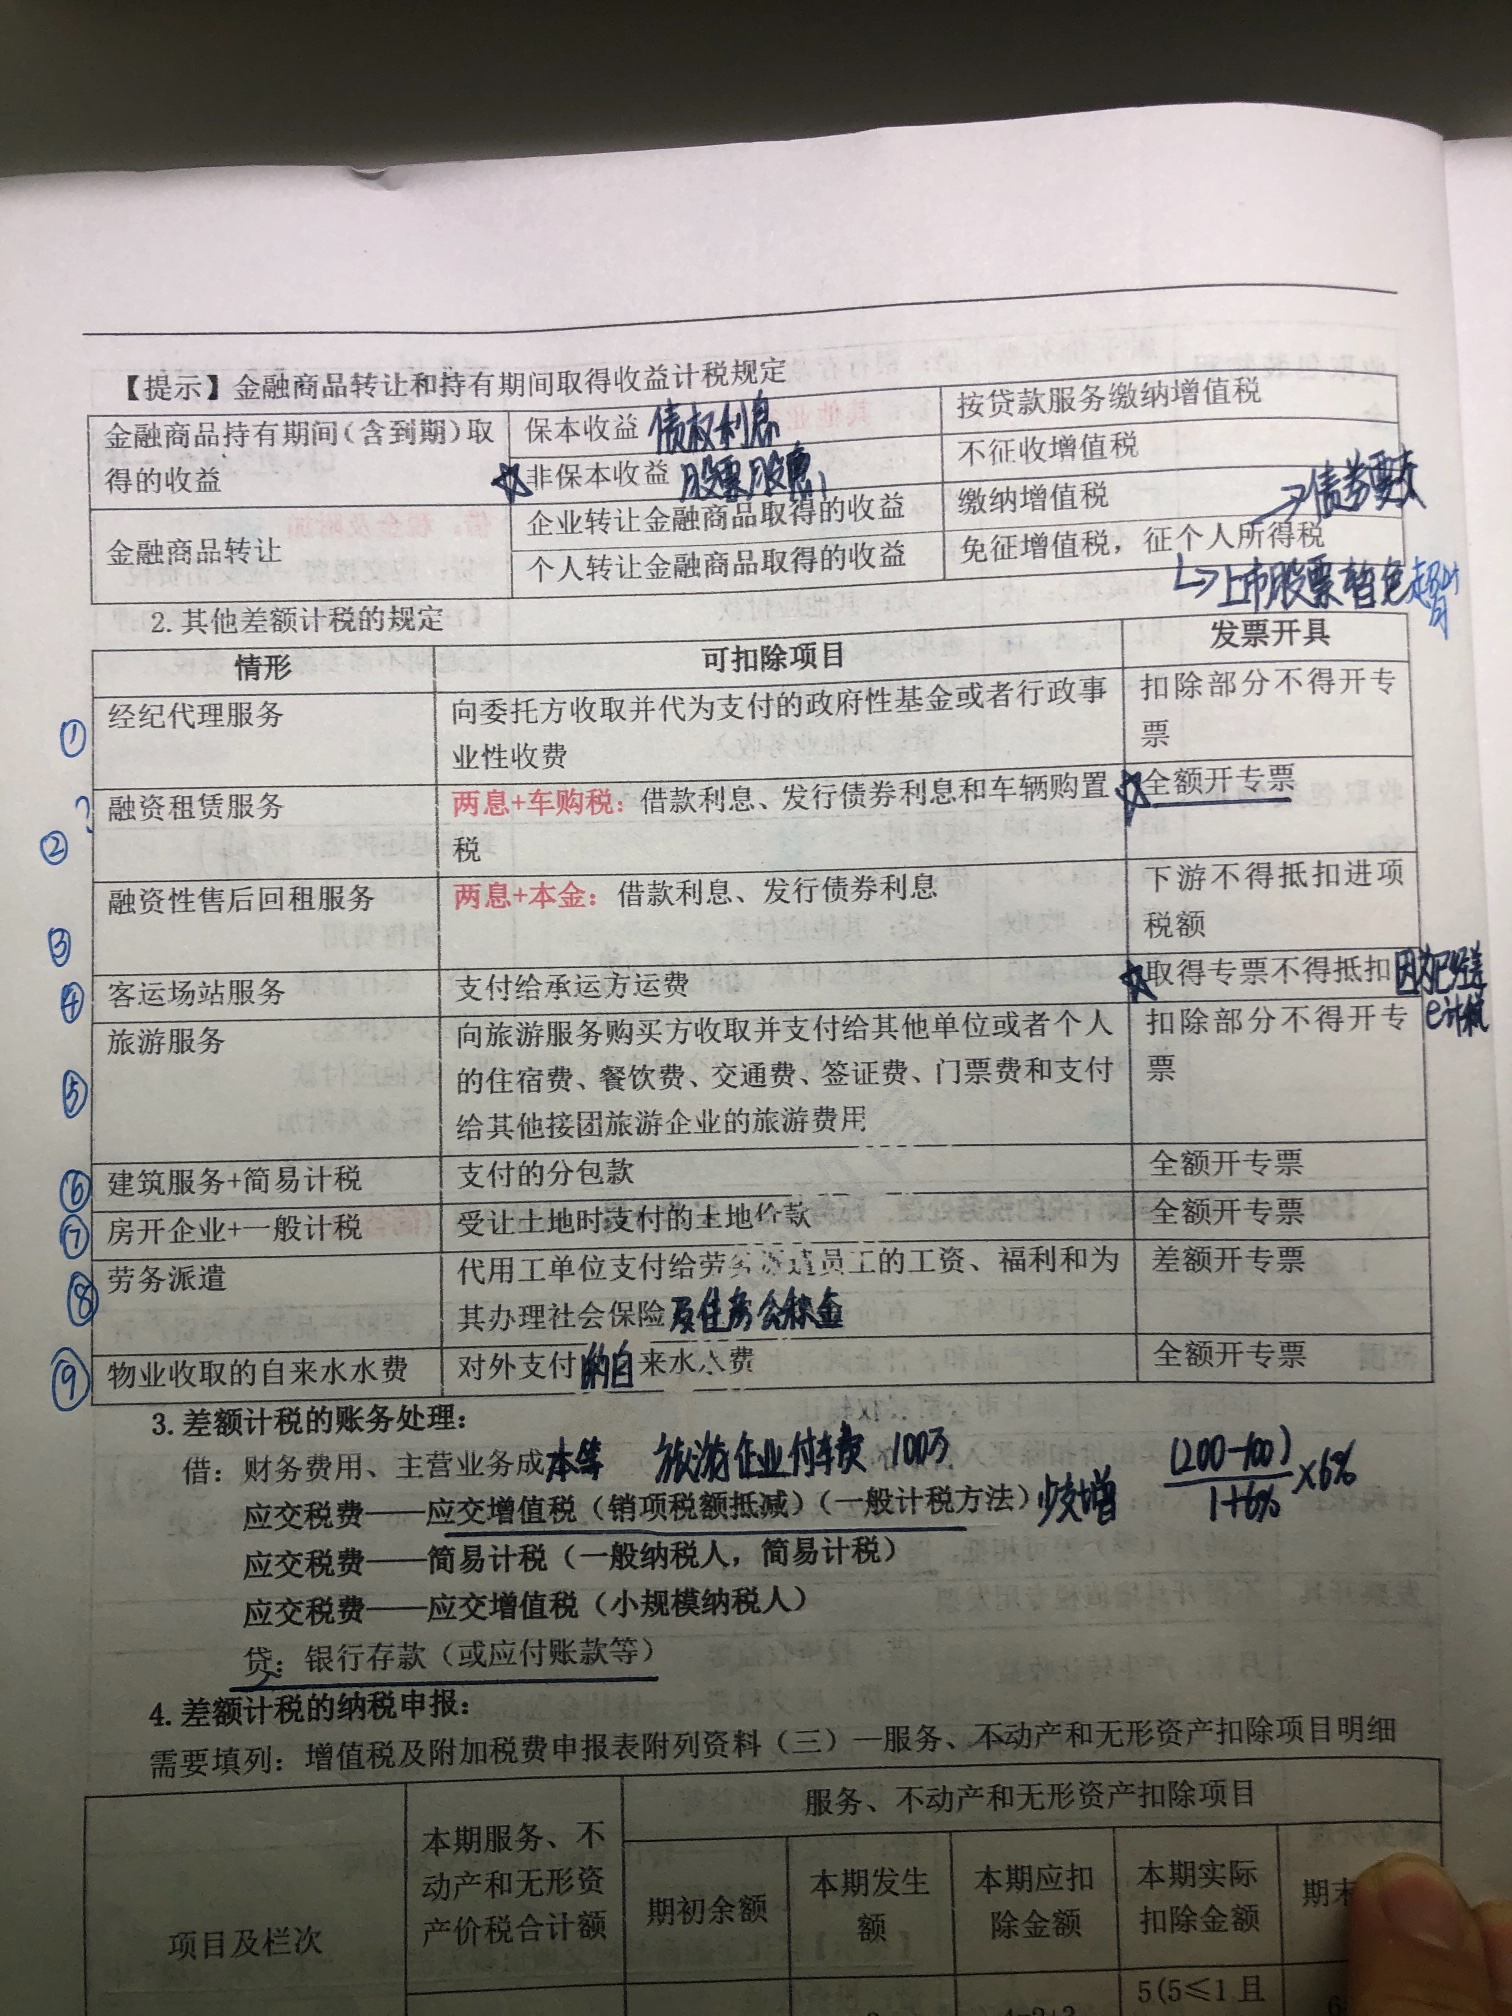 【提示】金融商品转让和持有期间取得收益计税规定
金融商品持有期间(含到期)取
得的收益
保本收益 债权利息
按贷款服务缴纳增值税
☆非保本收益 股票股息
不征收增值税
金融商品转让
企业转让金融商品取得的收益
缴纳增值税
个人转让金融商品取得的收益
免征增值税，征个人所得税
→债券要交
↳上市股票暂免
2.其他差额计税的规定
情形
可扣除项目
发票开具
①
经纪代理服务
向委托方收取并代为支付的政府性基金或者行政事
业性收费
扣除部分不得开专
票
?
②
融资租赁服务
两息+车购税：借款利息、发行债券利息和车辆购置
税
☆全额开专票
③
融资性售后回租服务
两息+本金：借款利息、发行债券利息
下游不得抵扣进项
税额
④
客运场站服务
支付给承运方运费
☆取得专票不得抵扣 因为已经差
e计税
⑤
旅游服务
向旅游服务购买方收取并支付给其他单位或者个人
的住宿费、餐饮费、交通费、签证费、门票费和支付
给其他接团旅游企业的旅游费用
扣除部分不得开专
票
⑥
建筑服务+简易计税
支付的分包款
全额开专票
⑦
房开企业+一般计税
受让土地时支付的土地价款
全额开专票
⑧
劳务派遣
代用工单位支付给劳务派遣员工的工资、福利和为
其办理社会保险及住房公积金
差额开专票
⑨
物业收取的自来水水费
对外支付的自来水水费
全额开专票
3.差额计税的账务处理：
借：财务费用、主营业务成本等 旅游企业付车费 100万
应交税费——应交增值税（销项税额抵减）（一般计税方法）少交增 (200-100)/1+6% ×6%
应交税费——简易计税（一般纳税人，简易计税）
应交税费——应交增值税（小规模纳税人）
贷：银行存款（或应付账款等）
4.差额计税的纳税申报：
需要填列：增值税及附加税费申报表附列资料（三）—服务、不动产和无形资产扣除项目明细
项目及栏次
本期服务、不
动产和无形资
产价税合计额
服务、不动产和无形资产扣除项目
期初余额
本期发生
额
本期应扣
除金额
本期实际
扣除金额
期末
5(5≤1 且